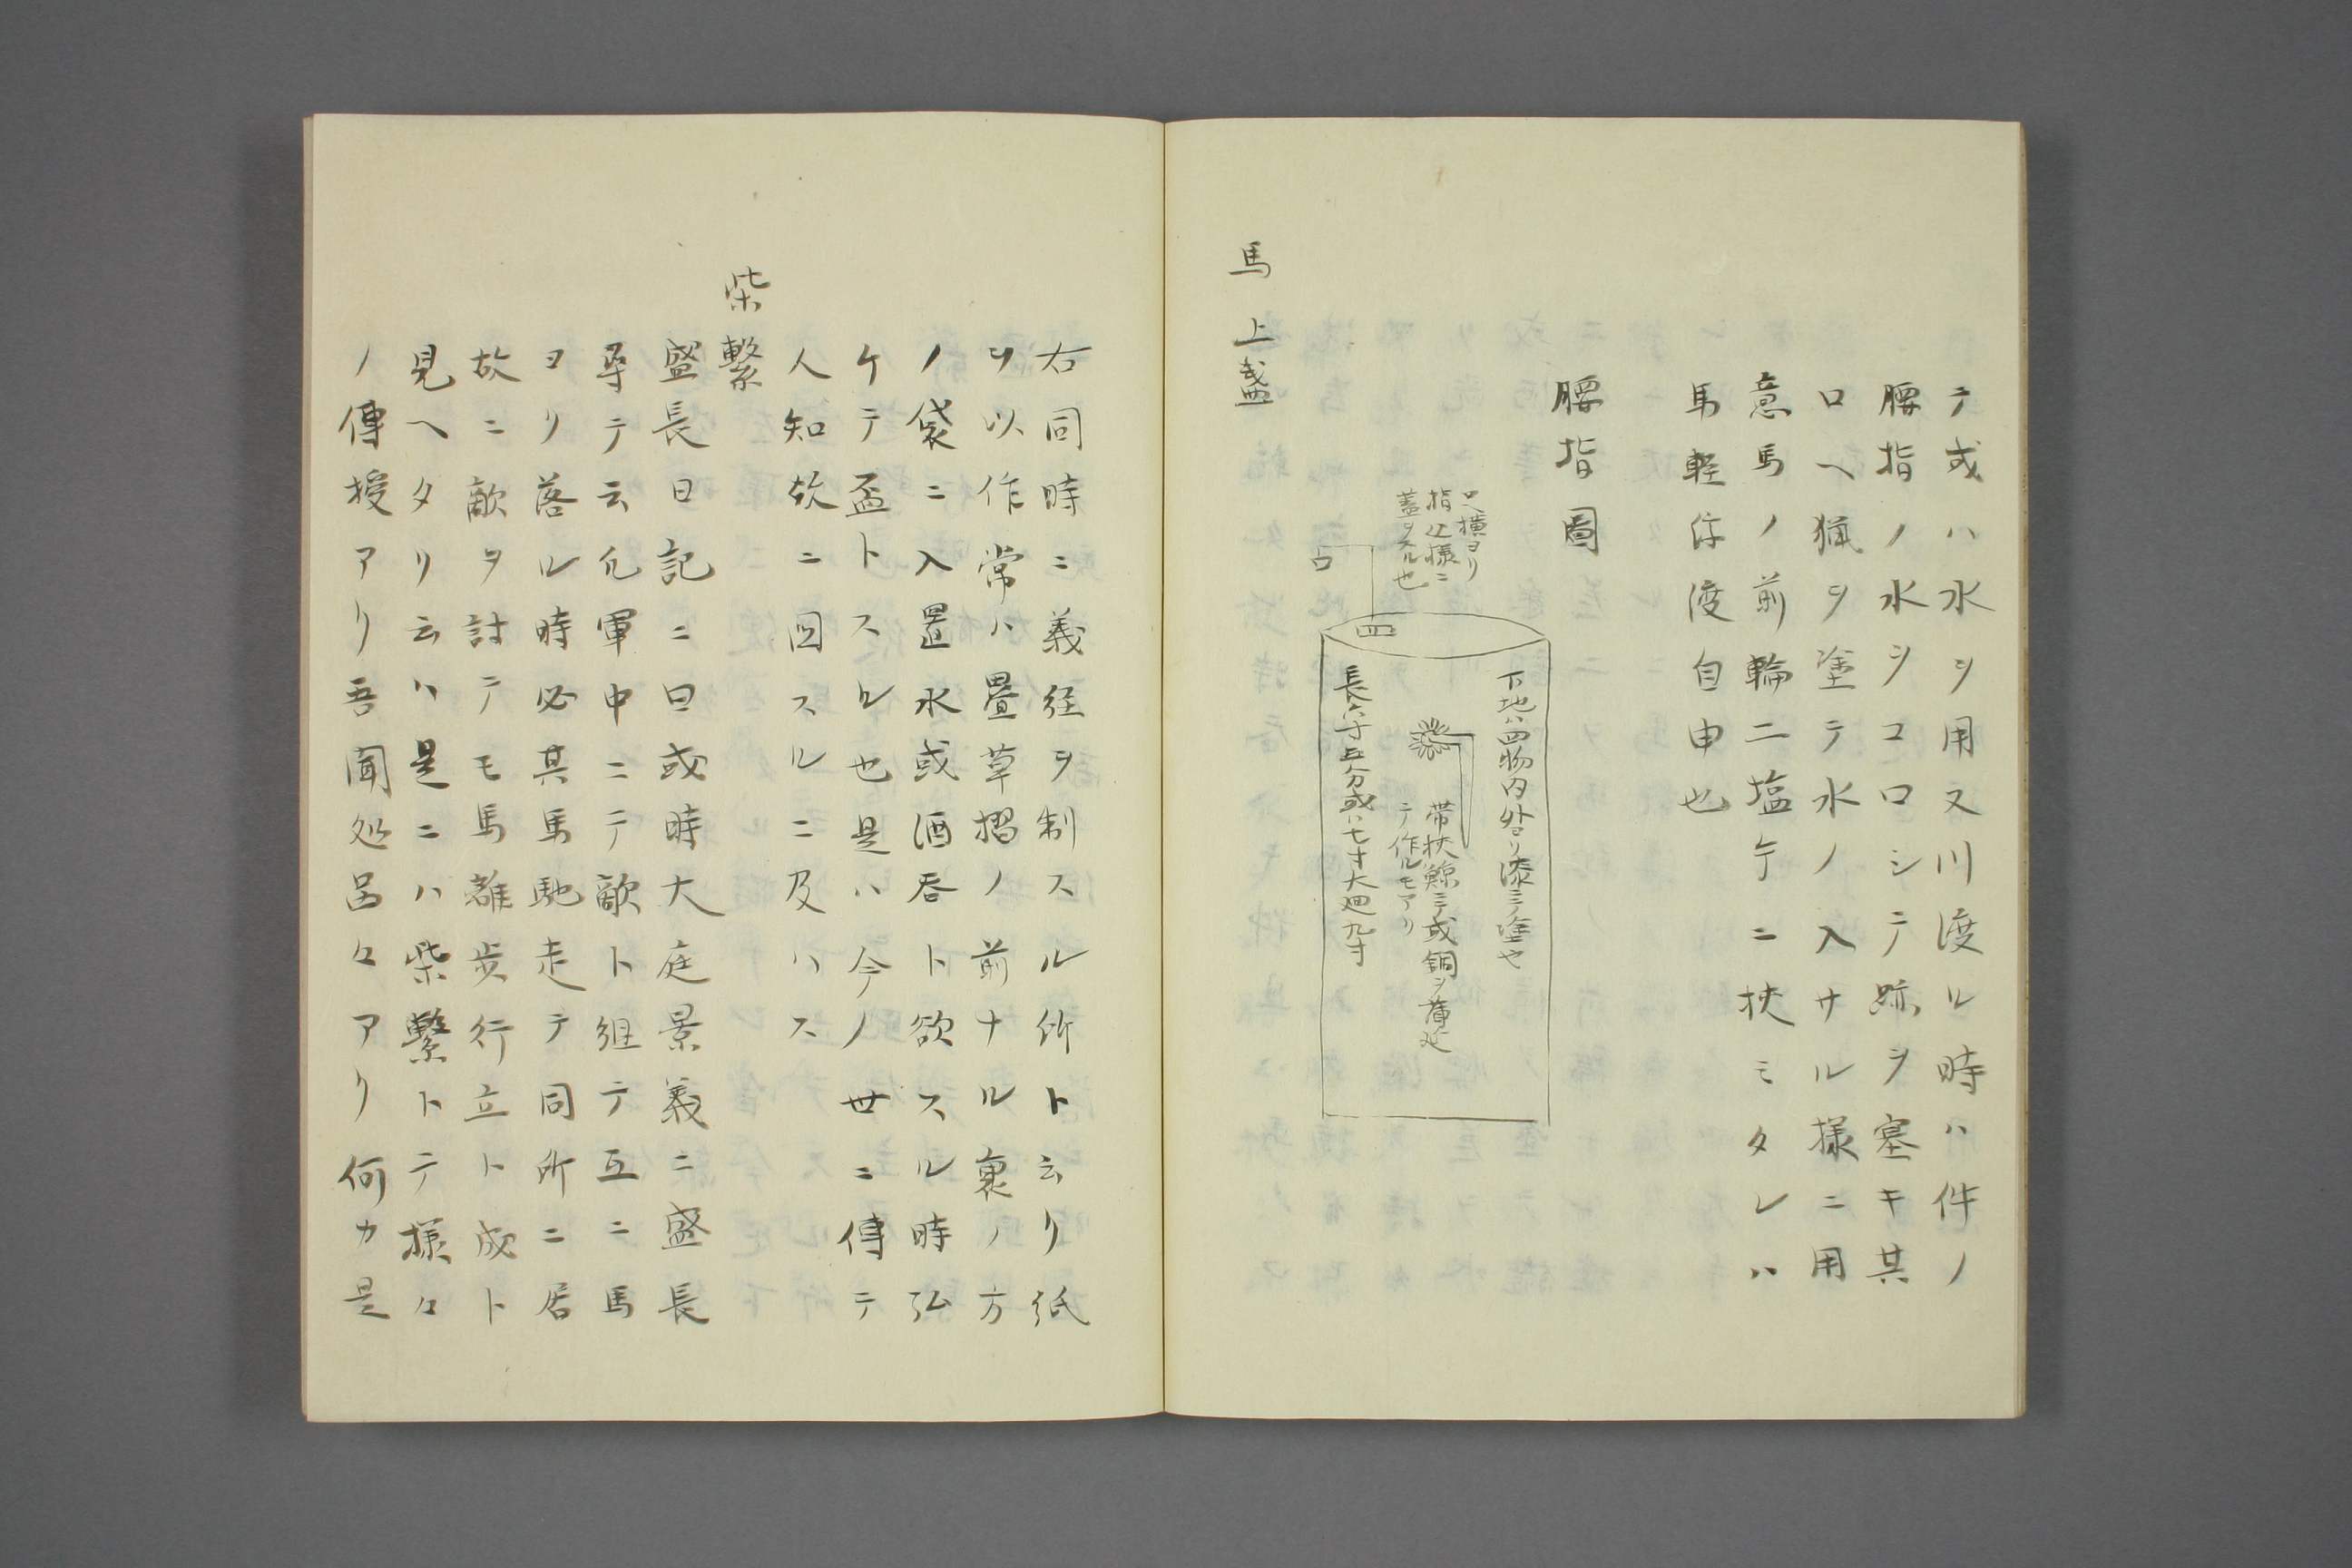 テ或ハ水ヲ用又川渡ル時ハ件ノ
腰指ノ水ヲコロシテ跡ヲ塞キ其
口ヘ猟ヲ塗テ水ノ入サル様ニ用
意馬ノ前輪二塩ケニ挟ミタレハ
馬軽浮渡自由也
腰指圖
口横ヨリ
指込様ニ
蓋ヲスル也
口
下地ハ四物内外ヨリ漆ニテ塗也
帯挟鯨ニテ或銅ヲ薄延
テ作ルモアリ
長六寸五分或ハ七寸大廻九寸
馬上盞
右同時ニ義経ヲ制スル所ト云リ紙
ヲ以作常ハ畳草摺ノ前ナル裏ノ方
ノ袋ニ入置水或酒呑ト欲スル時弘
ケテ盃トスル也是ハ今ノ世ニ傳テ
人知故ニ図スルニ及ハス
柴繋
盛長日記ニ曰或時大庭景義ニ盛長
尋テ云凡軍中ニテ敵ト組テ互ニ馬
ヨリ落ル時必其馬馳走テ同所ニ居
故ニ敵ヲ討テモ馬離歩行立ト成ト
見ヘタリ云ハ是ニハ柴繋トテ様々
ノ傳授アリ吾聞処品々アリ何カ是